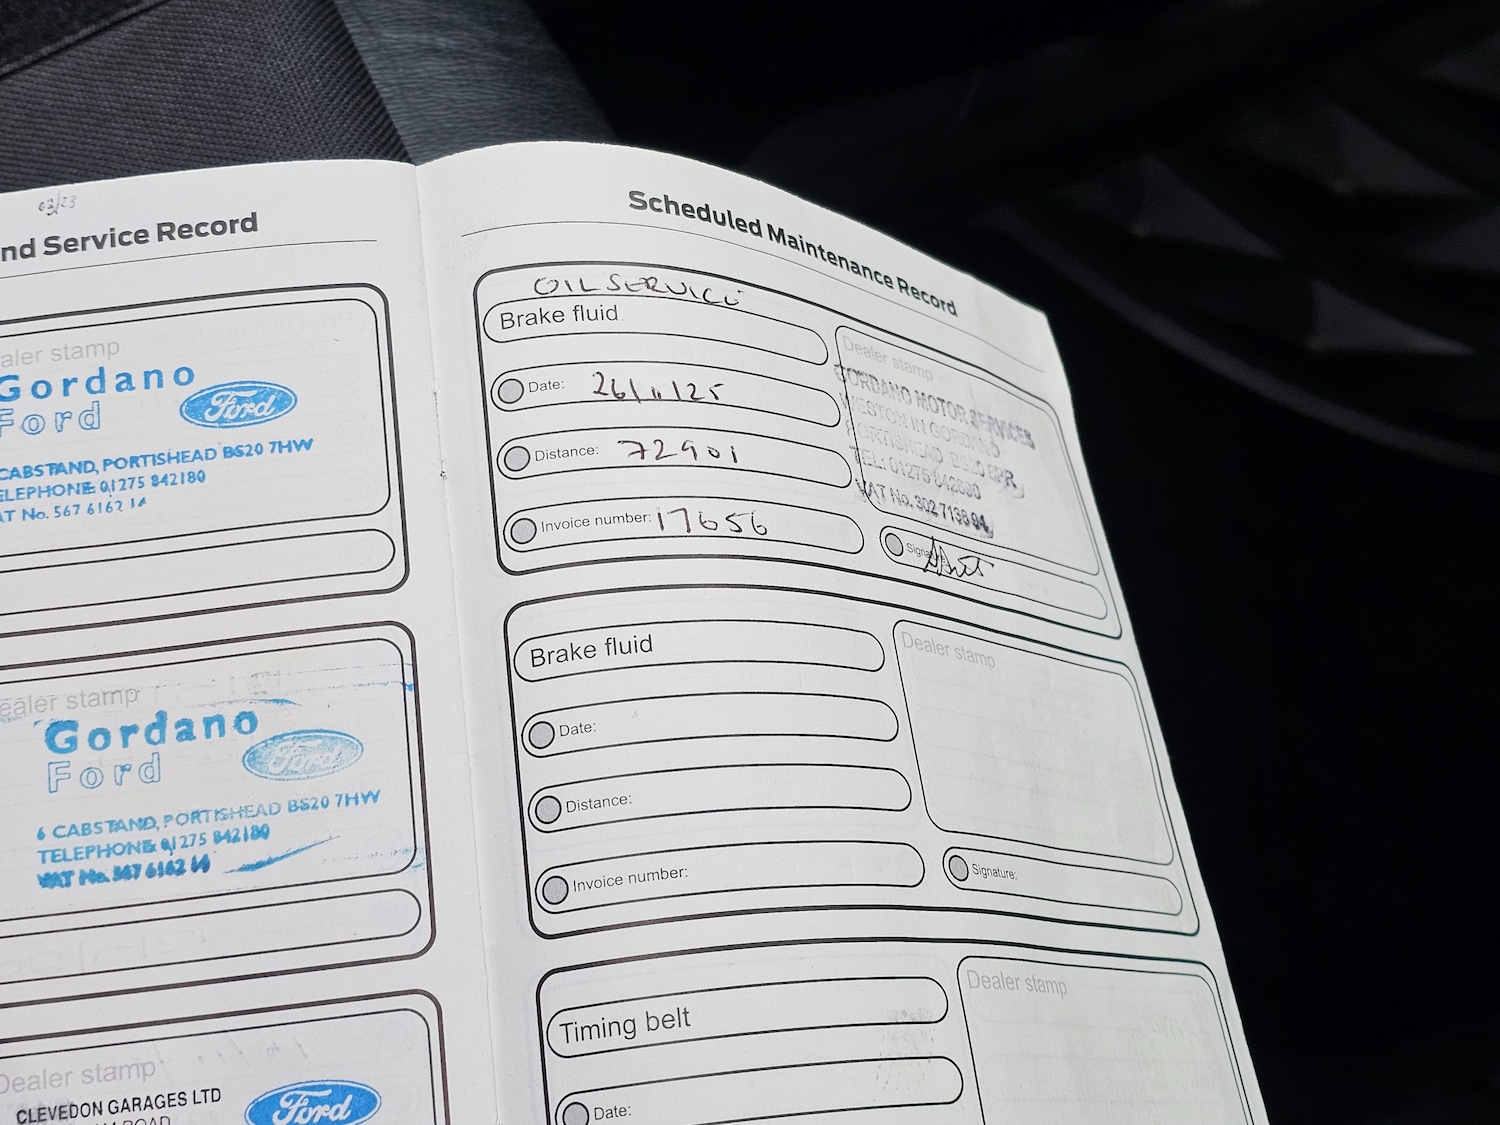 03/23
nd Service Record
aler stamp
Gordano
Ford
Ford
CABSTAND, PORTISHEAD BS20 7HW
ELEPHONE 01275 842180
AT No. 567 6162 14
ealer stamp
Gordano
Ford
Ford
6 CABSTAND, PORTISHEAD BS20 7HW
TELEPHONE 01275 842180
VAT No. 567 6162 14
Dealer stamp
CLEVEDON GARAGES LTD
ROAD
Ford
Scheduled Maintenance Record
OIL SERVICE
Brake fluid
Date: 26/11/25
Distance: 72901
Invoice number: 17656
Dealer stamp
GORDANO MOTOR SERVICES
WESTON IN GORDANO
PORTISHEAD
TEL: 01275 842690
VAT No. 302 7138 94
Signature:
Brake fluid
Date:
Distance:
Invoice number:
Dealer stamp
Signature:
Timing belt
Date:
Dealer stamp